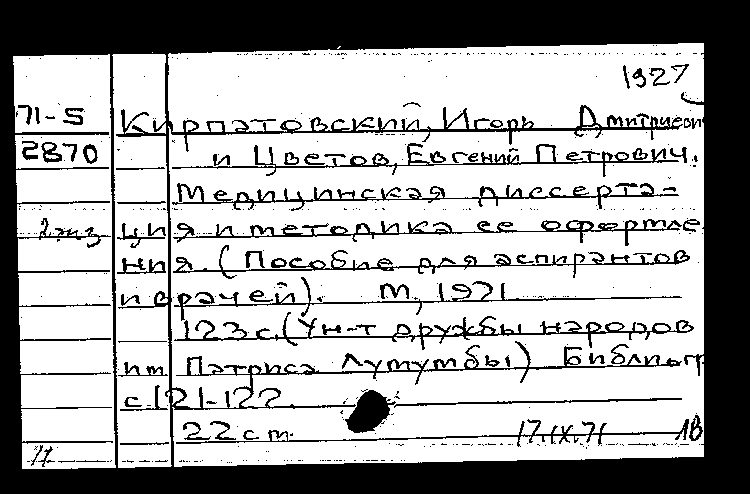 1927
71-5 Кирпатовский, Игорь Дмитриеви
2870 и Цветов, Евгений Петрович.
Медицинская диссерта-
2 экз ция и методика ее оформле
ния. (Пособие для аспирантов
и врачей). М, 1971
123 с. (Ун-т дружбы народов
им Патриса Лумумбы) Библиогр
с 121-122.
22 см. 17.IX.71